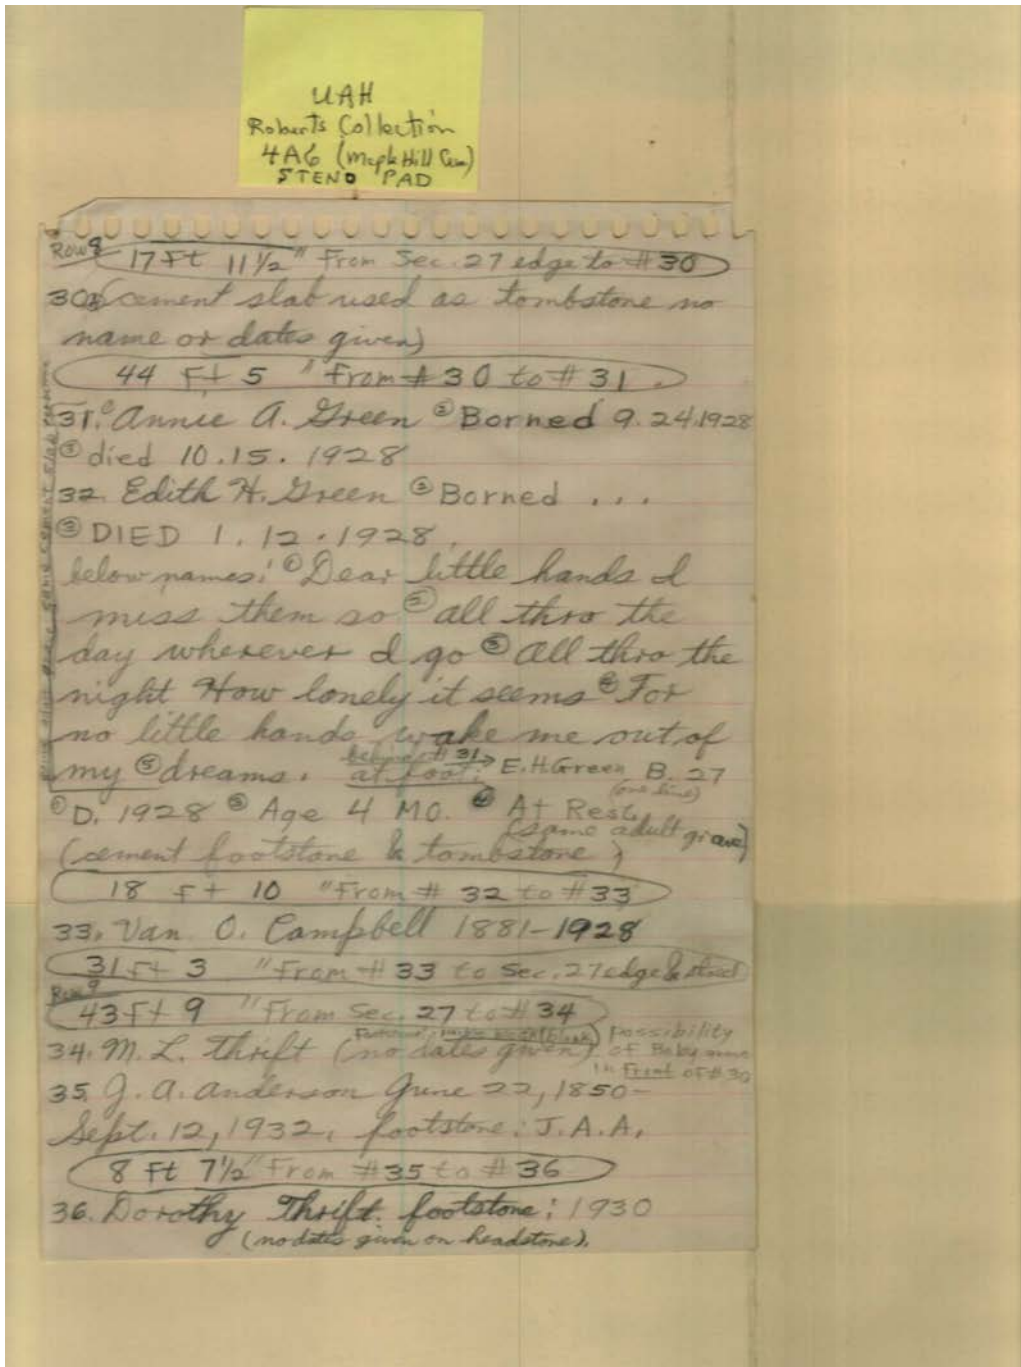 UAH
Roberts Collection
4A6 (Maple Hill Cem)
STENO PAD
Row 8
17 Ft 11 1/2 " From Sec. 27 edge to #30
30. (cement slab used as tombstone no
name or dates given)
44 Ft 5 " From #30 to #31.
31. ① Annie A. Green ② Borned 9.24.1928
③ died 10.15.1928
32. Edith H. Green ② Borned ...
③ DIED 1.12.1928.
below names: ① Dear little hands I
miss them so ② all thro the
day wherever I go ③ All thro the
night How lonely it seems ④ For
no little hands wake me out of
my ⑤ dreams. behind #31→ at foot: E.H.Green B. 27
(one line)
① D. 1928 ③ Age 4 MO. ④ At Rest.
(same adult grave)
(cement footstone & tombstone)
18 Ft 10 " From # 32 to #33
33. Van O. Campbell 1881-1928
31 Ft 3 " From # 33 to Sec. 27 edge &
Row 9
43 Ft 9 " From Sec. 27 to # 34
34. M. L. Thrift (no dates given) possibility
of Baby
in Front of #30
35. J. A. Anderson June 22, 1850-
Sept. 12, 1932, footstone: J.A.A.
8 Ft 7 1/2 " From #35 to #36
36. Dorothy Thrift. footstone: 1930
(no dates given on headstone).